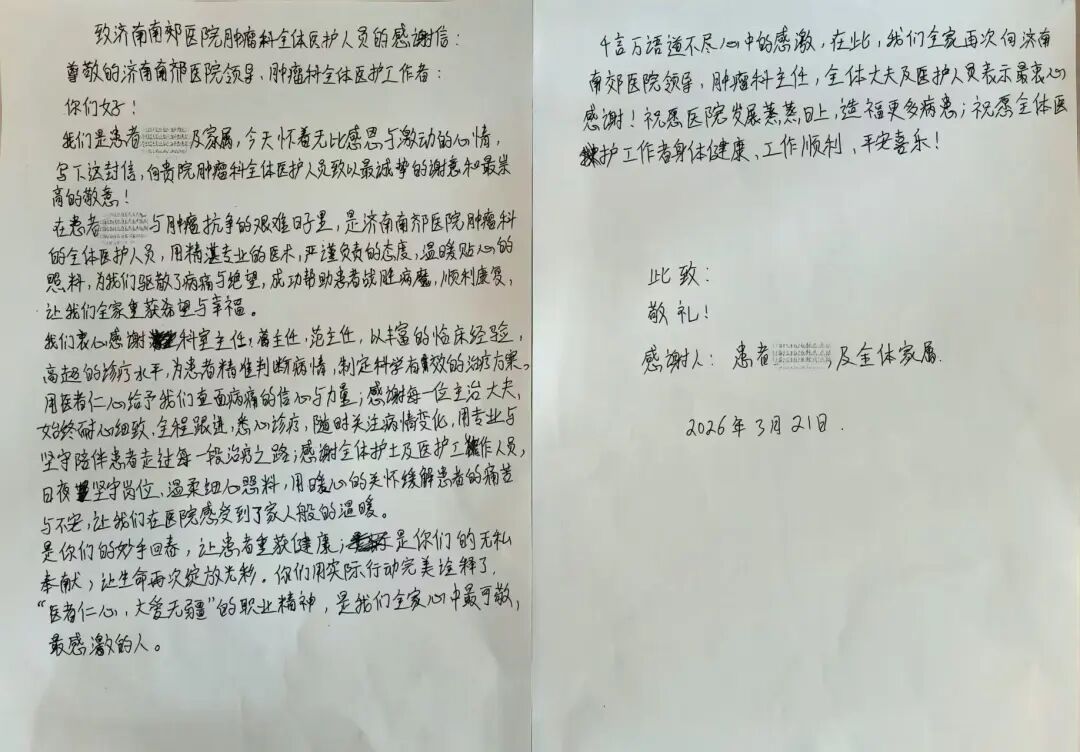 致济南南郊医院肿瘤科全体医护人员的感谢信：
尊敬的济南南郊医院领导、肿瘤科全体医护工作者：
你们好！
我们是患者及家属，今天怀着无比感恩与激动的心情，
写下这封信，向贵院肿瘤科全体医护人员致以最诚挚的谢意和最崇
高的敬意！
在患者与肿瘤抗争的艰难日子里，是济南南郊医院肿瘤科
的全体医护人员，用精湛专业的医术，严谨负责的态度，温暖贴心的
照料，为我们驱散了病痛与绝望，成功帮助患者战胜病魔，顺利康复，
让我们全家重获希望与幸福。
我们衷心感谢科室主任，主任，范主任，以丰富的临床经验，
高超的诊疗水平，为患者精准判断病情，制定科学有效的治疗方案。
用医者仁心给予我们直面病痛的信心与力量；感谢每一位主治大夫，
始终耐心细致、全程跟进，悉心诊疗，随时关注病情变化，用专业与
坚守陪伴患者走过每一段治疗之路；感谢全体护士及医护工作人员，
日夜坚守岗位、温柔细心照料，用暖心的关怀缓解患者的痛苦
与不安，让我们在医院感受到了家人般的温暖。
是你们的妙手回春，让患者重获健康；是你们的无私
奉献，让生命再次绽放光彩。你们用实际行动完美诠释了
“医者仁心，大爱无疆”的职业精神，是我们全家心中最可敬，
最感激的人。
千言万语道不尽心中的感激，在此，我们全家再次向济南
南郊医院领导，肿瘤科主任，全体大夫及医护人员表示最衷心
感谢！祝愿医院发展蒸蒸日上，造福更多病患；祝愿全体医
护工作者身体健康、工作顺利，平安喜乐！
此致：
敬礼！
感谢人：患者及全体家属.
2026年3月21日.